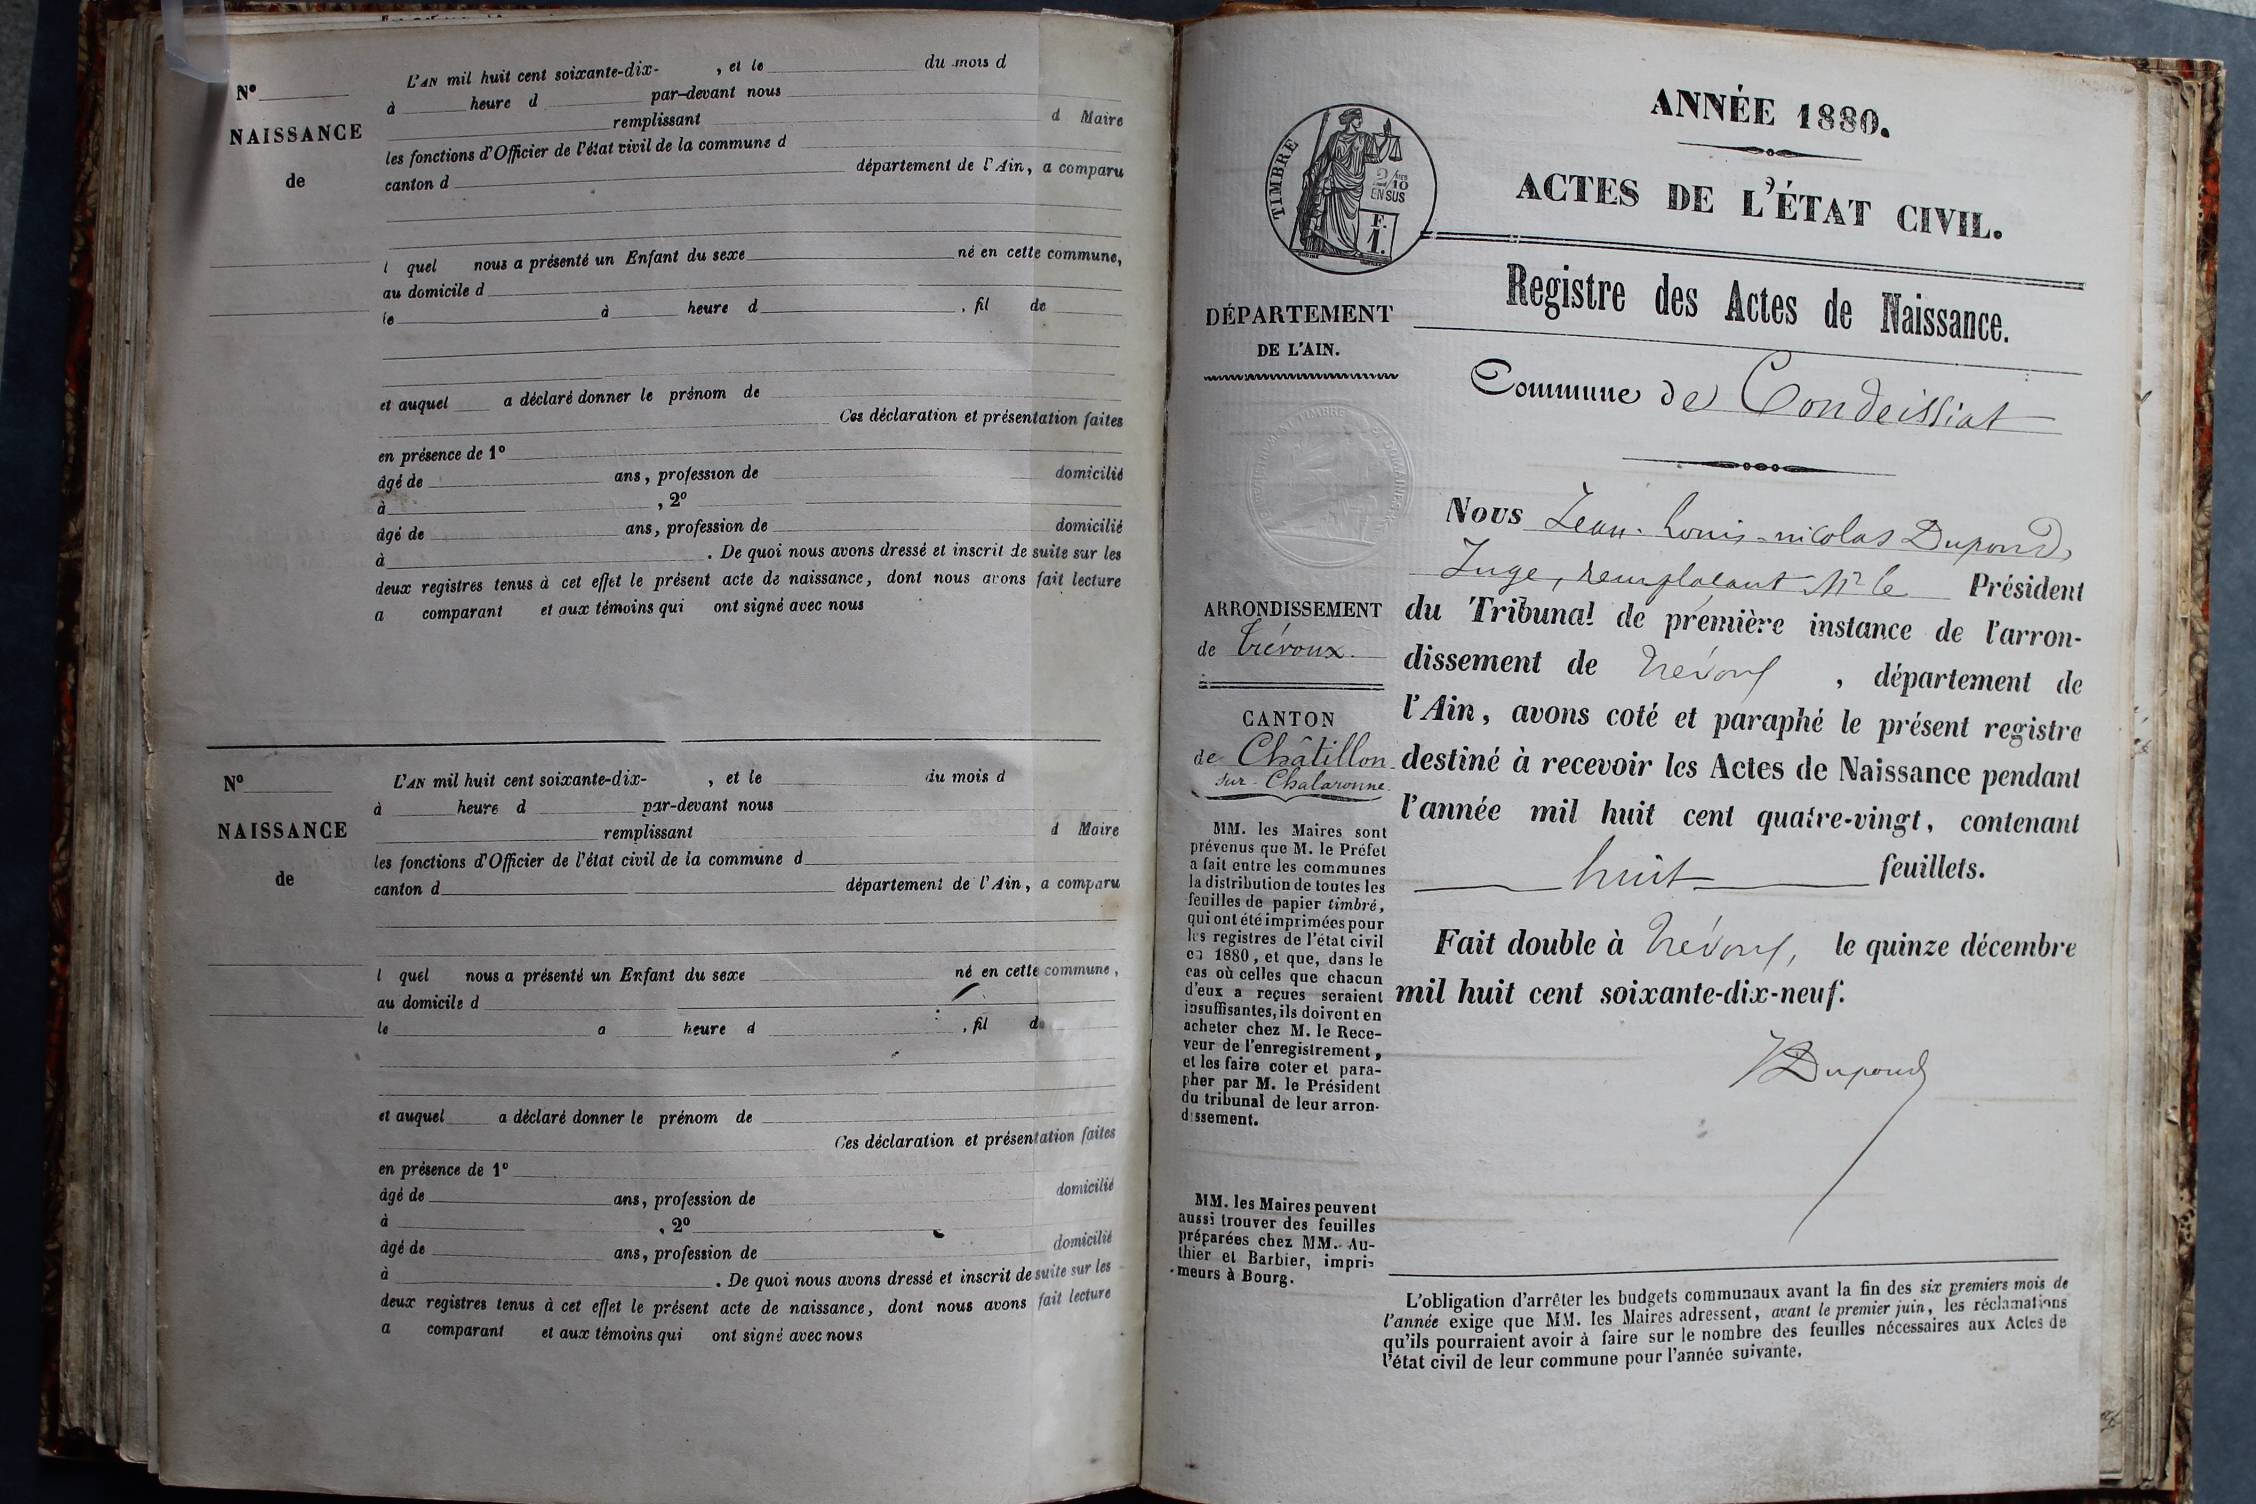 N°
NAISSANCE
de
L'AN mil huit cent soixante-dix- , et le du mois d
à heure d par-devant nous
remplissant d Maire
les fonctions d'Officier de l'état civil de la commune d
canton d département de l'Ain, a comparu
l quel nous a présenté un Enfant du sexe né en cette commune,
au domicile d
le à heure d , fil de
et auquel a déclaré donner le prénom de
Ces déclaration et présentation faites
en présence de 1°
âgé de ans, profession de domicilié
à , 2°
âgé de ans, profession de domicilié
à . De quoi nous avons dressé et inscrit de suite sur les
deux registres tenus à cet effet le présent acte de naissance, dont nous avons fait lecture
a comparant et aux témoins qui ont signé avec nous
N°
NAISSANCE
de
L'AN mil huit cent soixante-dix- , et le du mois d
à heure d par-devant nous
remplissant d Maire
les fonctions d'Officier de l'état civil de la commune d
canton d département de l'Ain, a comparu
l quel nous a présenté un Enfant du sexe né en cette commune,
au domicile d
le a heure d , fil de
et auquel a déclaré donner le prénom de
Ces déclaration et présentation faites
en présence de 1°
âgé de ans, profession de domicilié
à , 2°
âgé de ans, profession de domicilié
à . De quoi nous avons dressé et inscrit de suite sur les
deux registres tenus à cet effet le présent acte de naissance, dont nous avons fait lecture
a comparant et aux témoins qui ont signé avec nous
TIMBRE
2/10
EN SUS
F.
1.
DÉPARTEMENT
DE L'AIN.
ARRONDISSEMENT
de Trévoux.
CANTON
de Châtillon
sur-Chalaronne
MM. les Maires sont
prévenus que M. le Préfet
a fait entre les communes
la distribution de toutes les
feuilles de papier timbré,
qui ont été imprimées pour
les registres de l'état civil
en 1880, et que, dans le
cas où celles que chacun
d'eux a reçues seraient
insuffisantes, ils doivent en
acheter chez M. le Rece-
veur de l'enregistrement,
et les faire coter et para-
pher par M. le Président
du tribunal de leur arron-
dissement.
MM. les Maires peuvent
aussi trouver des feuilles
préparées chez MM. Au-
thier et Barbier, impri-
meurs à Bourg.
ANNÉE 1880.
ACTES DE L'ÉTAT CIVIL.
Registre des Actes de Naissance.
Commune de Condeissiat
Nous Jean-Louis-nicolas Dupond,
Juge, remplaçant Mr le Président
du Tribunal de première instance de l'arron-
dissement de Trévoux , département de
l'Ain, avons coté et paraphé le présent registre
destiné à recevoir les Actes de Naissance pendant
l'année mil huit cent quatre-vingt, contenant
huit feuillets.
Fait double à Trévoux, le quinze décembre
mil huit cent soixante-dix-neuf.
Dupond
L'obligation d'arrêter les budgets communaux avant la fin des six premiers mois de
l'année exige que MM. les Maires adressent, avant le premier juin, les réclamations
qu'ils pourraient avoir à faire sur le nombre des feuilles nécessaires aux Actes de
l'état civil de leur commune pour l'année suivante.